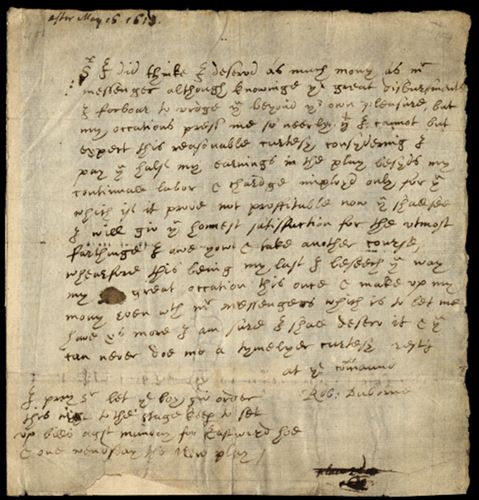 after May 16 1613
Sr I did thinke I deservd as much mony as mr
messenger although knowinge yr great disbursments
I forbour to vrdge yu beyond yr own pleasure, but
my occations press me so neerly yt I cannot but
expect this reasonable curtesy considering I
pay yu half my earnings in the play besyds my
continuall labor & chardge imployd only for yu
which if it prove not profitable now yu shall see
I will giv yu honest satisfaction for the utmost
farthinge I owe you & take another course,
whearfore this being my last I beseech yu way
my great occation this once & make up my
mony even wth mr messengers which is to let me
have xs more I am sure I shall deserv it & yu
can never doe me a tymelyer curtesy resting
at yr comaund
Rob: Daborne
I pray sr let ye boy giv order
this night to the stage keep to set
up bills agst munday for Eastward hoe
& one wendsday the New play